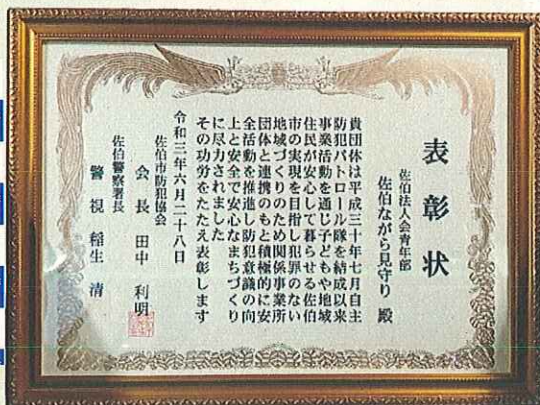 表彰状
佐伯法人会青年部
佐伯ながら見守り 殿
貴団体は平成三十年七月自主
防犯パトロール隊を結成以来
事業活動を通じ子どもや地域
住民が安心して暮らせる佐伯
市の実現を目指し犯罪のない
地域づくりのため関係事業所
団体と連携のもと積極的に安
全活動を推進し防犯意識の向
上と安全で安心なまちづくり
に尽力されました
その功労をたたえ表彰します
令和三年六月二十八日
佐伯市防犯協会
会長 田中 利明
佐伯警察署長
警視 稲生 清